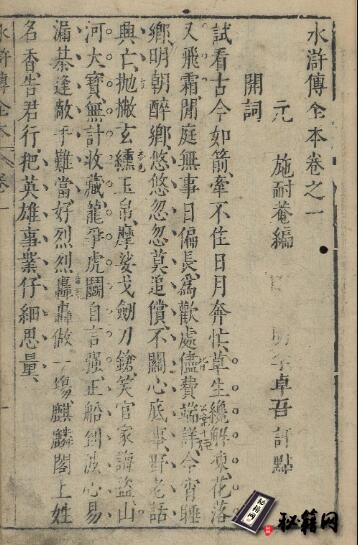 水滸傳全本卷之一
元 施耐菴編 卓吾 點
開詞
試看古今如箭牽不住日月奔忙草生纔解凍花落
又飛霜閒庭無事日偏長為歡處儘費端詳今宵睡
鄉明朝醉鄉悠悠忽忽莫追償不關心底事野老話
興亡拋撇玄纁玉帛摩娑戈劍刀鎗笑官家誨盜山
河大寶無計收藏龍爭虎鬭自言强正船心易
漏棊逢敵手難當好烈烈轟轟做一塲麒麟閣上姓
名香告君行把英雄事業仔細思量
水滸傳全本 卷一
秘籍网